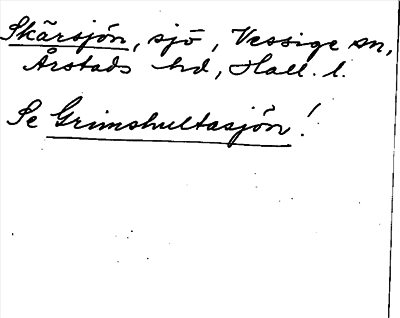 Skärsjön, sjö, Vessige sn,
Årstads hd, Hall. l.
Se Grimshultasjön!